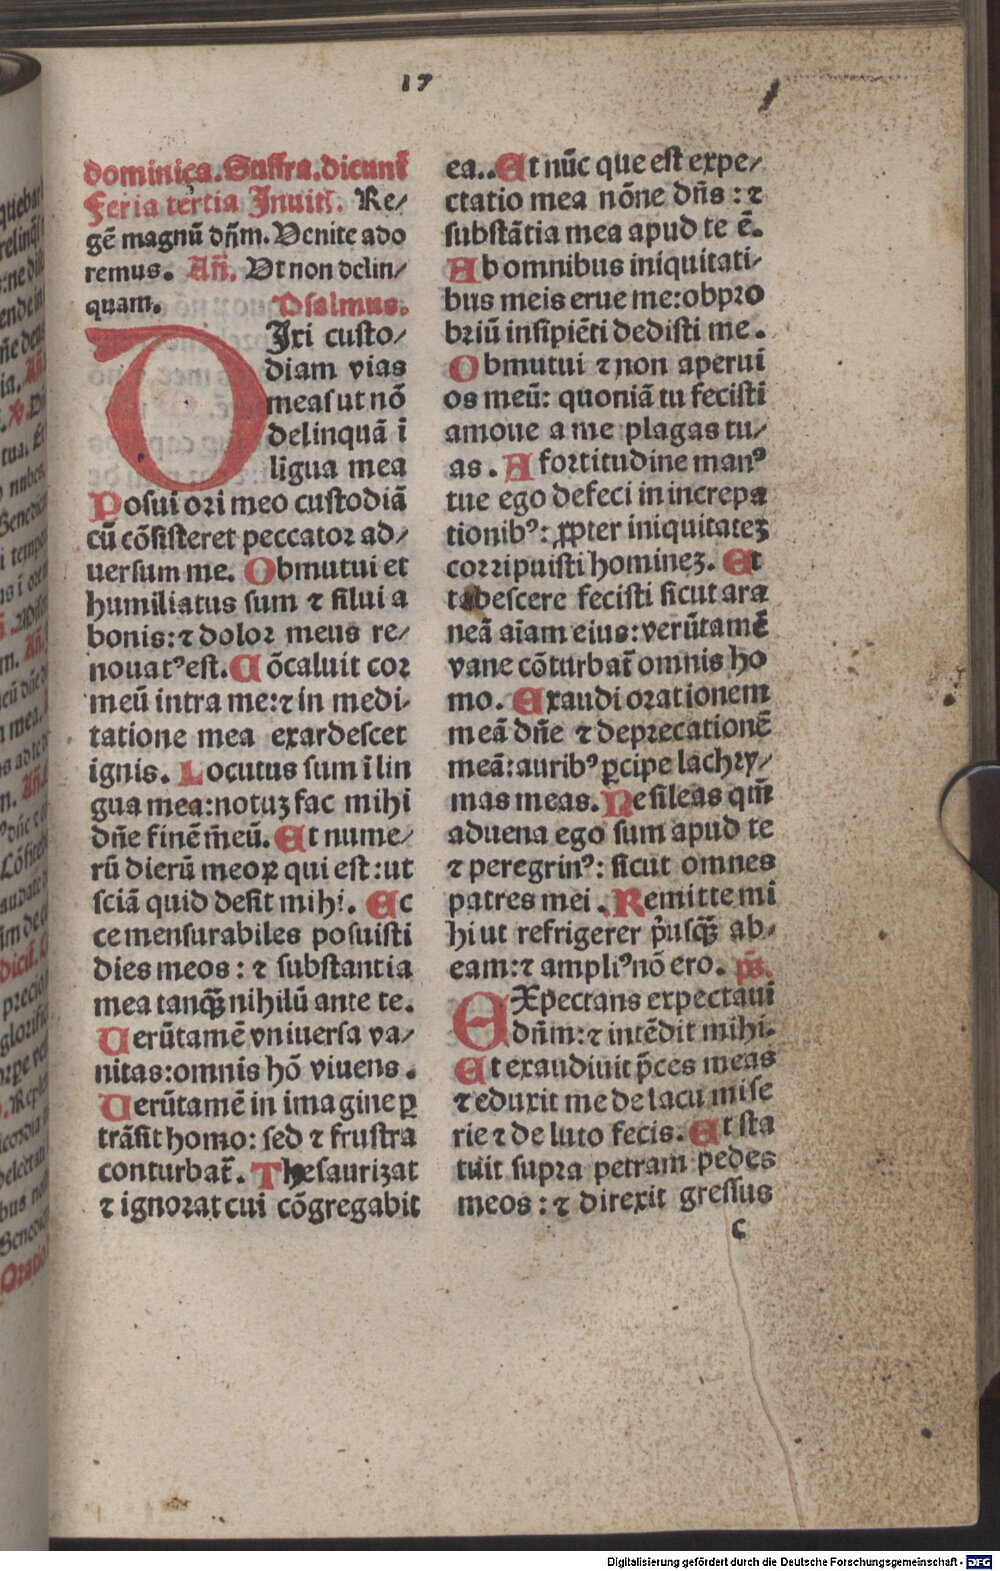 17
dominica. Suffra. dicunt᷑
Feria tertia Inuit᷑. Re⸗
gē magnū dn̄m. Venite ado
remus. An̄. Vt non delin⸗
quam. Psalmus.
DIxi custo⸗
diam vias
meas ut nō
delinquā ī
ligua mea
Posui ori meo custodiā
cū cōsisteret peccator ad⸗
uersum me. Obmutui et
humiliatus sum ⁊ silui a
bonis: ⁊ dolor meus re⸗
nouatꝰ est. Cōcaluit cor
meū intra me: ⁊ in medi⸗
tatione mea exardescet
ignis. Locutus sum ī lin
gua mea: notuꝫ fac mihi
dn̄e finē m̄eū. Et nume⸗
rū dierū meoꝝ qui est: ut
sciā quid desit mihi. Ec
ce mensurabiles posuisti
dies meos: ⁊ substantia
mea tanqꝫ̄ nihilū ante te.
Uerūtamē vniuersa va⸗
nitas: omnis hō viuens.
Uerūtamē in imagine ꝑ
trāsit homo: sed ⁊ frustra
conturbat᷑. Thesaurizat
⁊ ignorat cui cōgregabit
ea.. Et nūc que est expe⸗
ctatio mea nōne dn̄s: ⁊
substātia mea apud te ē.
Ab omnibus iniquitati⸗
bus meis erue me: obpro
briū insipiēti dedisti me.
Obmutui ⁊ non aperui
os meū: quoniā tu fecisti
amoue a me plagas tu⸗
as. A fortitudine manꝰ
tue ego defeci in increpa
tionibꝰ: ꝓpter iniquitateꝫ
corripuisti homineꝫ. Et
tabescere fecisti sicut ara
neā aīam eius: verūtamē
vane cōturbat᷑ omnis ho
mo. Exaudi orationem
meā dn̄e ⁊ deprecationē
meā: auribꝰ ꝑcipe lachry⸗
mas meas. Ne sileas qm̄
aduena ego sum apud te
⁊ peregrinꝰ: sicut omnes
patres mei. Remitte mi
hi ut refrigerer p̓usqꝫ̄ ab⸗
eam: ⁊ ampliꝰ nō ero. ps̄.
EXpectans expectaui
dn̄m: ⁊ intēdit mihi.
Et exaudiuit p̄ces meas
⁊ eduxit me de lacu mise
rie ⁊ de luto fecis. Et sta
tuit supra petram pedes
meos: ⁊ direxit gressus
c
Digitalisierung gefördert durch die Deutsche Forschungsgemeinschaft - DFG